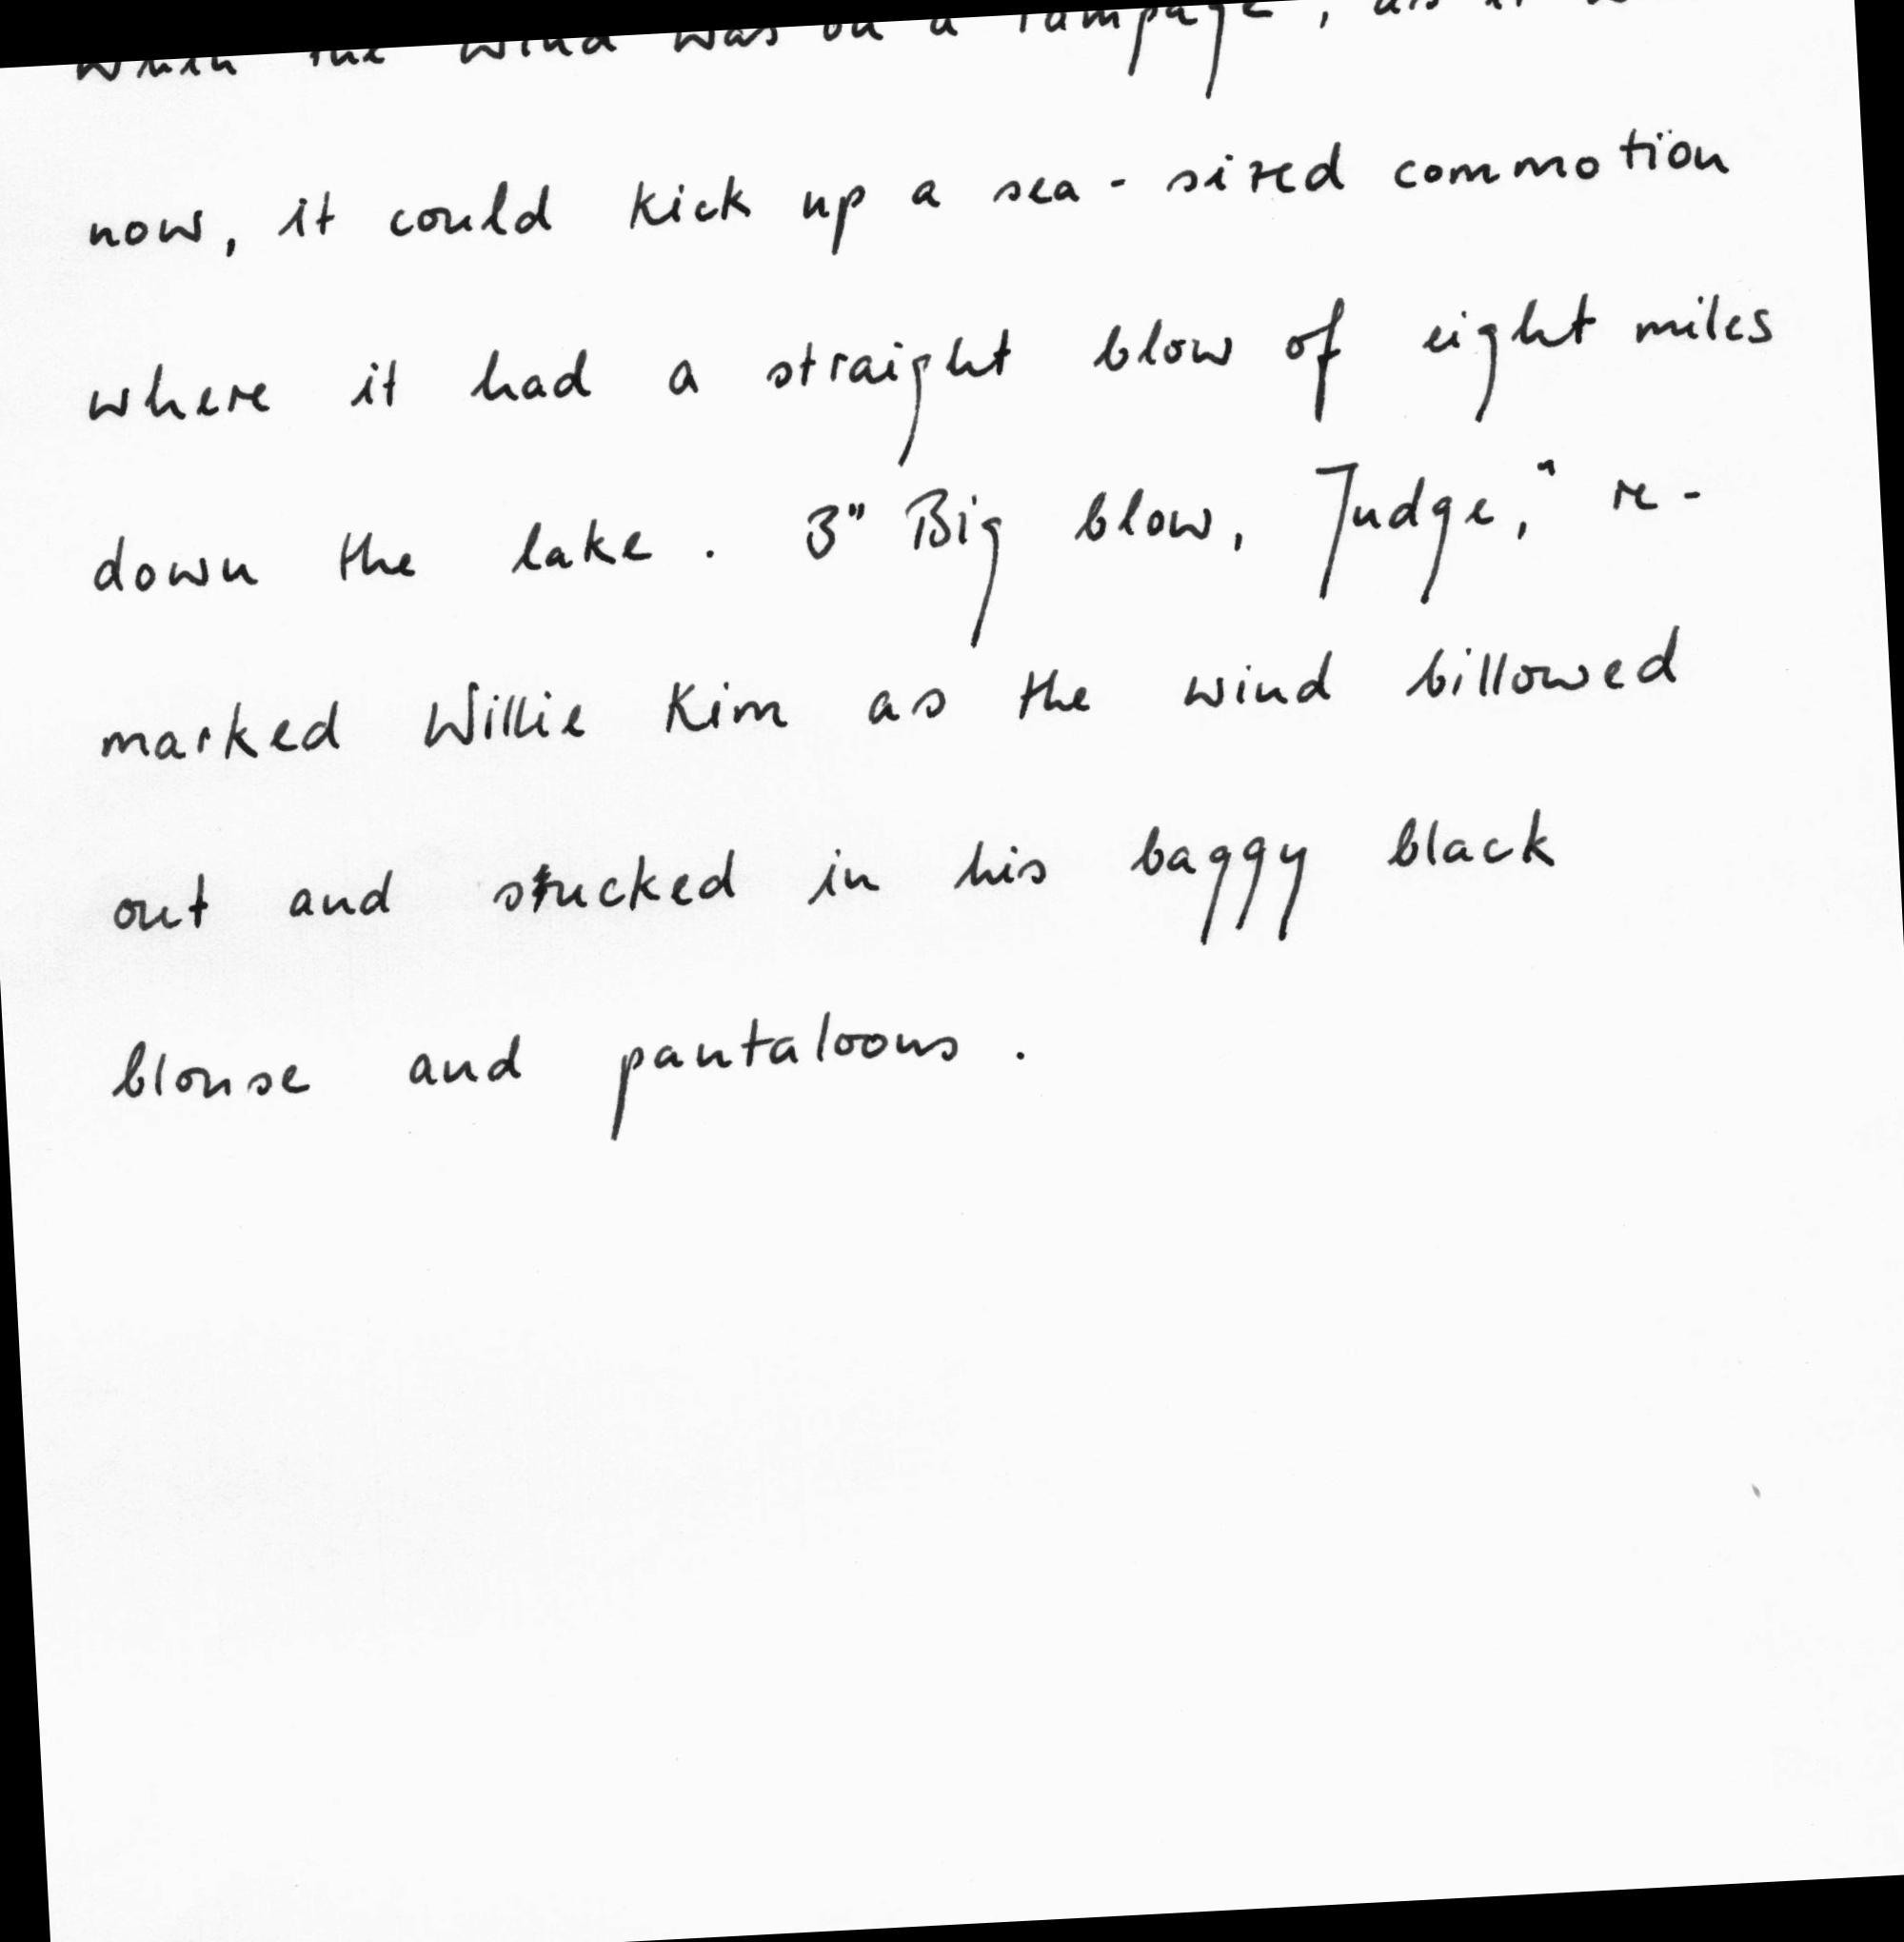 when the wind was on a rampage, as it
now, it could kick up a sea-sized commotion
where it had a straight blow of eight miles
down the lake. 3" Big blow, Judge," re-
marked Willie Kim as the wind billowed
out and stucked in his baggy black
blouse and pantaloons.